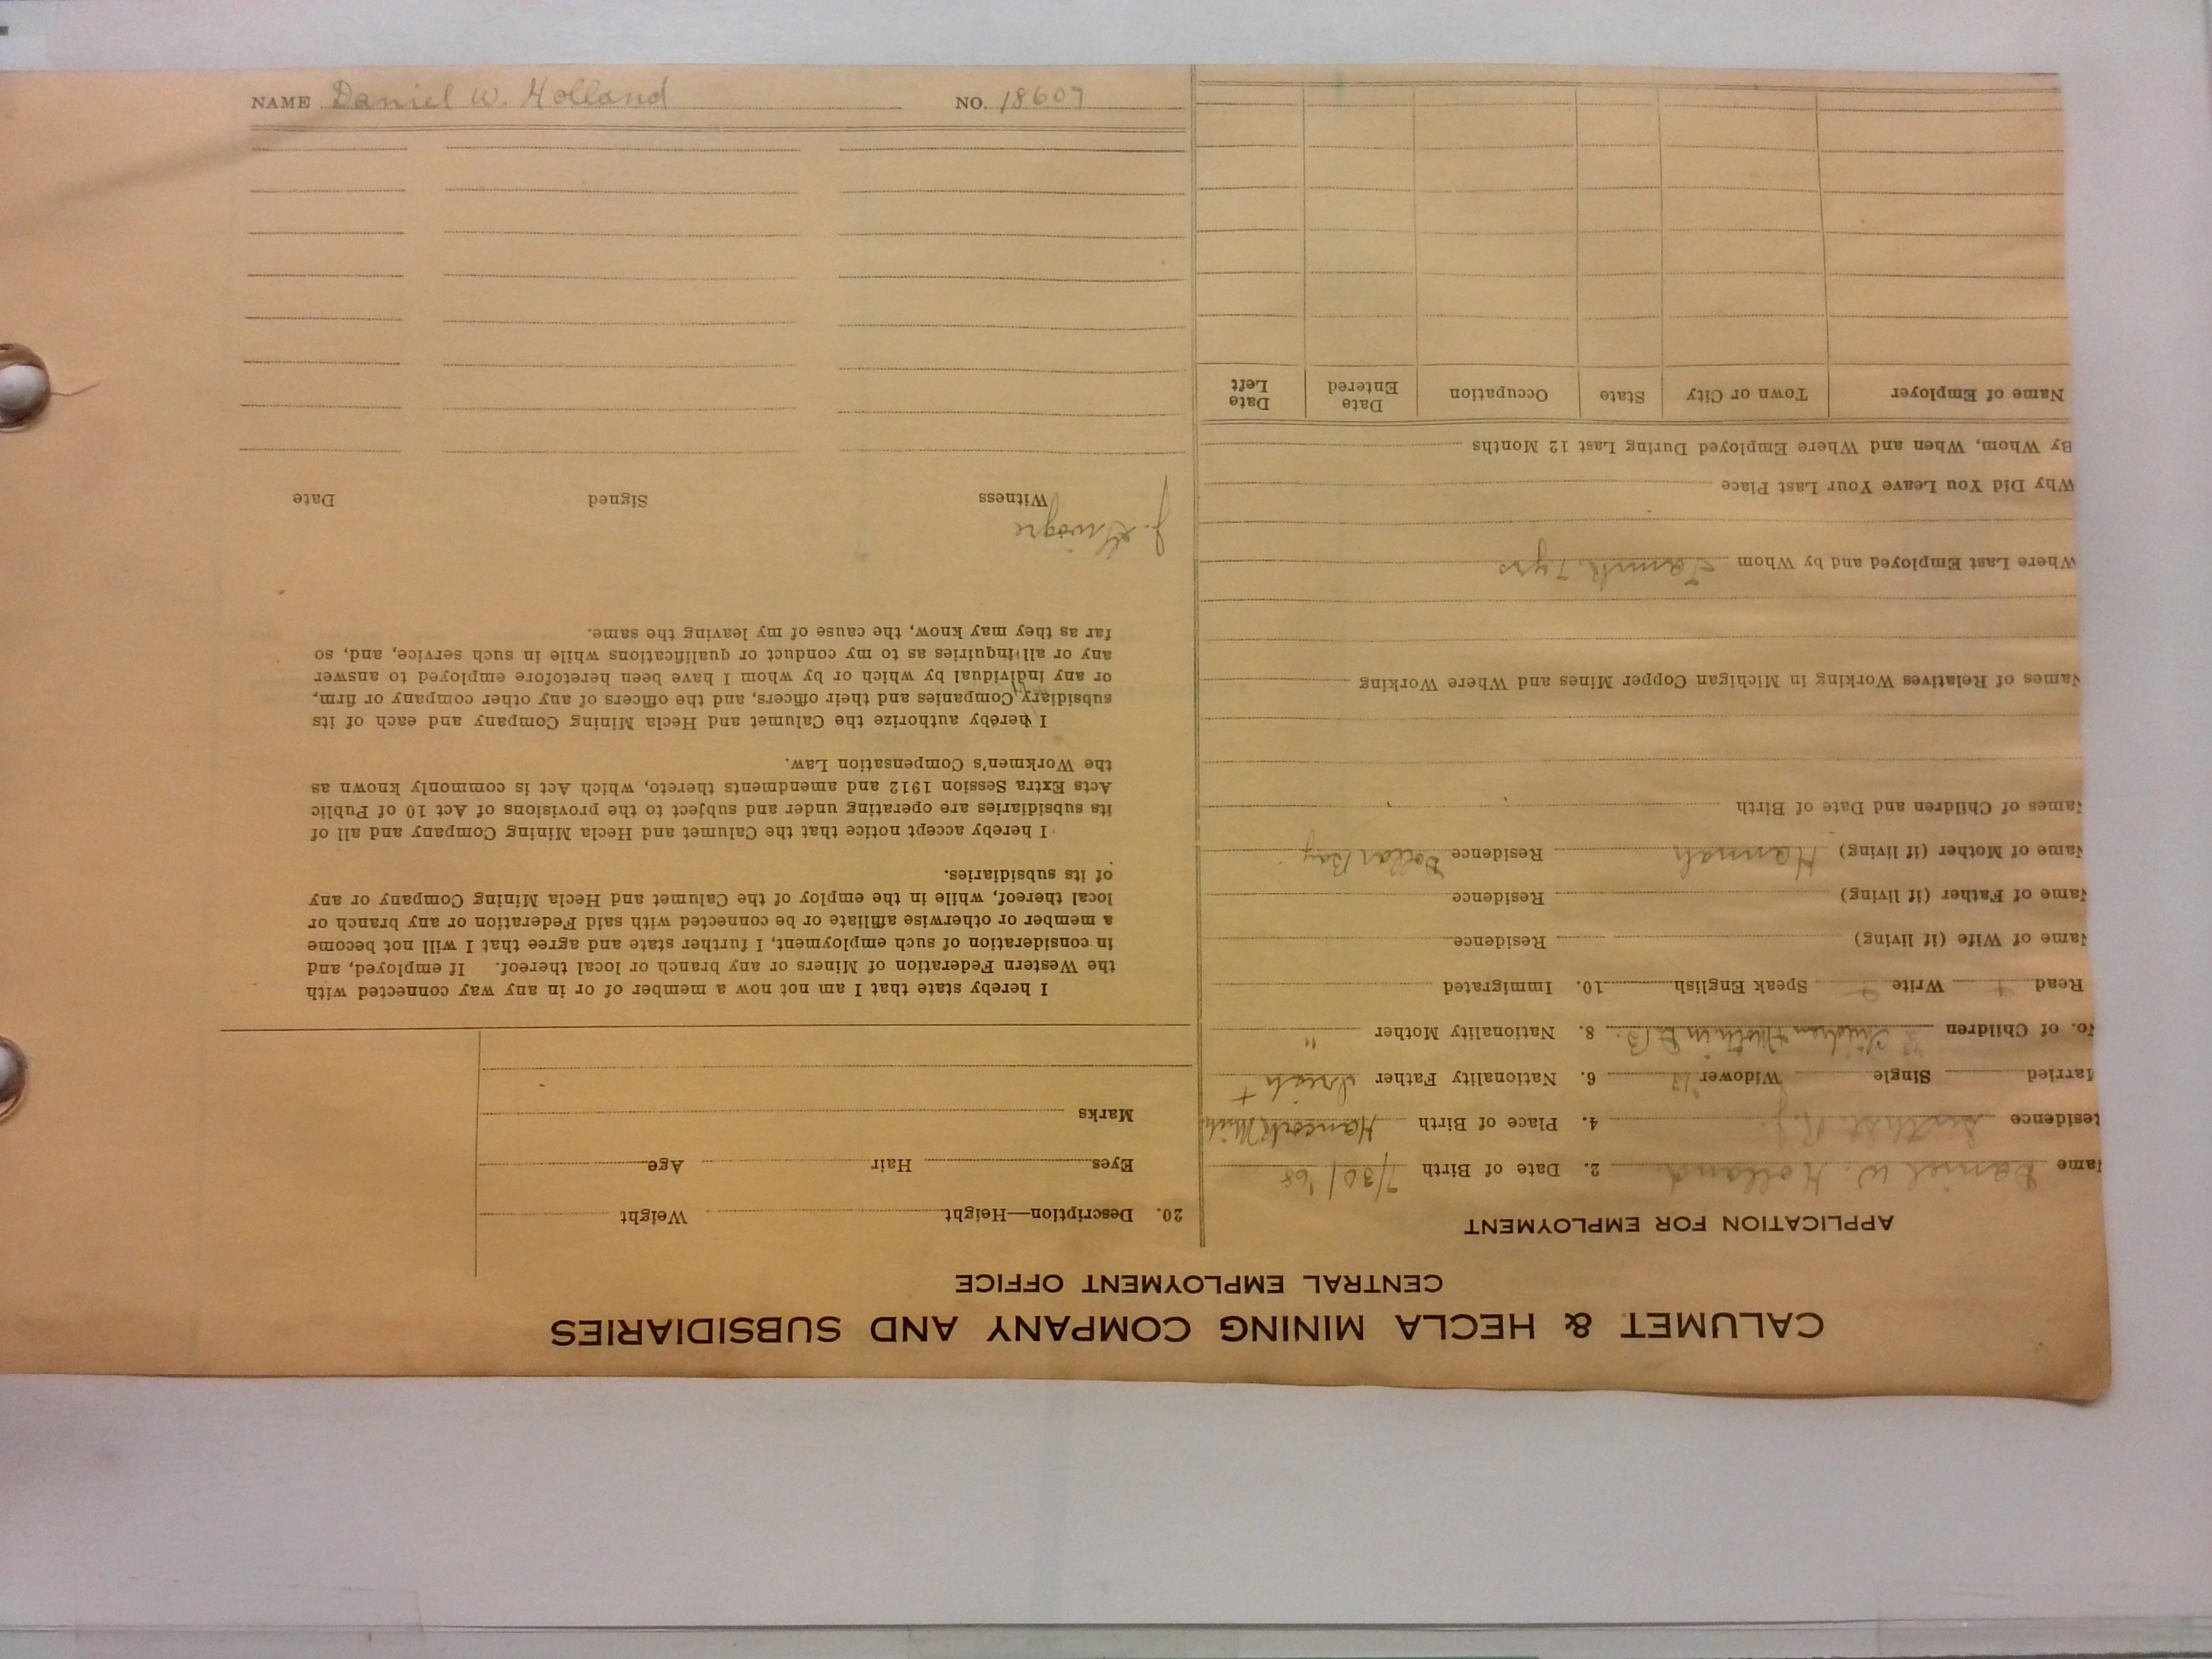 CALUMET & HECLA MINING COMPANY AND SUBSIDIARIES
CENTRAL EMPLOYMENT OFFICE
APPLICATION FOR EMPLOYMENT
ame Daniel W. Holland 2. Date of Birth 7/30/'68
esidence R.J. 4. Place of Birth Hancock Mich
arried Single Widower '13 6. Nationality Father Irish +
o. of Children Children + Moth in D.B. 8. Nationality Mother "
Read + Write + Speak English 10. Immigrated
ame of Wife (if living) Residence
ame of Father (if living) Residence
ame of Mother (if living) Hannah Residence Dollar Bay
ames of Children and Date of Birth
ames of Relatives Working in Michigan Copper Mines and Where Working
Where Last Employed and by Whom 7 yrs
Why Did You Leave Your Last Place
By Whom, When and Where Employed During Last 12 Months
Name of Employer Town or City State Occupation Date Entered Date Left
20. Description—Height Weight
Eyes Hair Age
Marks
I hereby state that I am not now a member of or in any way connected with
the Western Federation of Miners or any branch or local thereof. If employed, and
in consideration of such employment, I further state and agree that I will not become
a member or otherwise affiliate or be connected with said Federation or any branch or
local thereof, while in the employ of the Calumet and Hecla Mining Company or any
of its subsidiaries.
I hereby accept notice that the Calumet and Hecla Mining Company and all of
its subsidiaries are operating under and subject to the provisions of Act 10 of Public
Acts Extra Session 1912 and amendments thereto, which Act is commonly known as
the Workmen's Compensation Law.
I hereby authorize the Calumet and Hecla Mining Company and each of its
subsidiary Companies and their officers, and the officers of any other company or firm,
or any individual by which or by whom I have been heretofore employed to answer
any or all inquiries as to my conduct or qualifications while in such service, and, so
far as they may know, the cause of my leaving the same.
J.
Witness Signed Date
NAME Daniel W. Holland NO. 18607